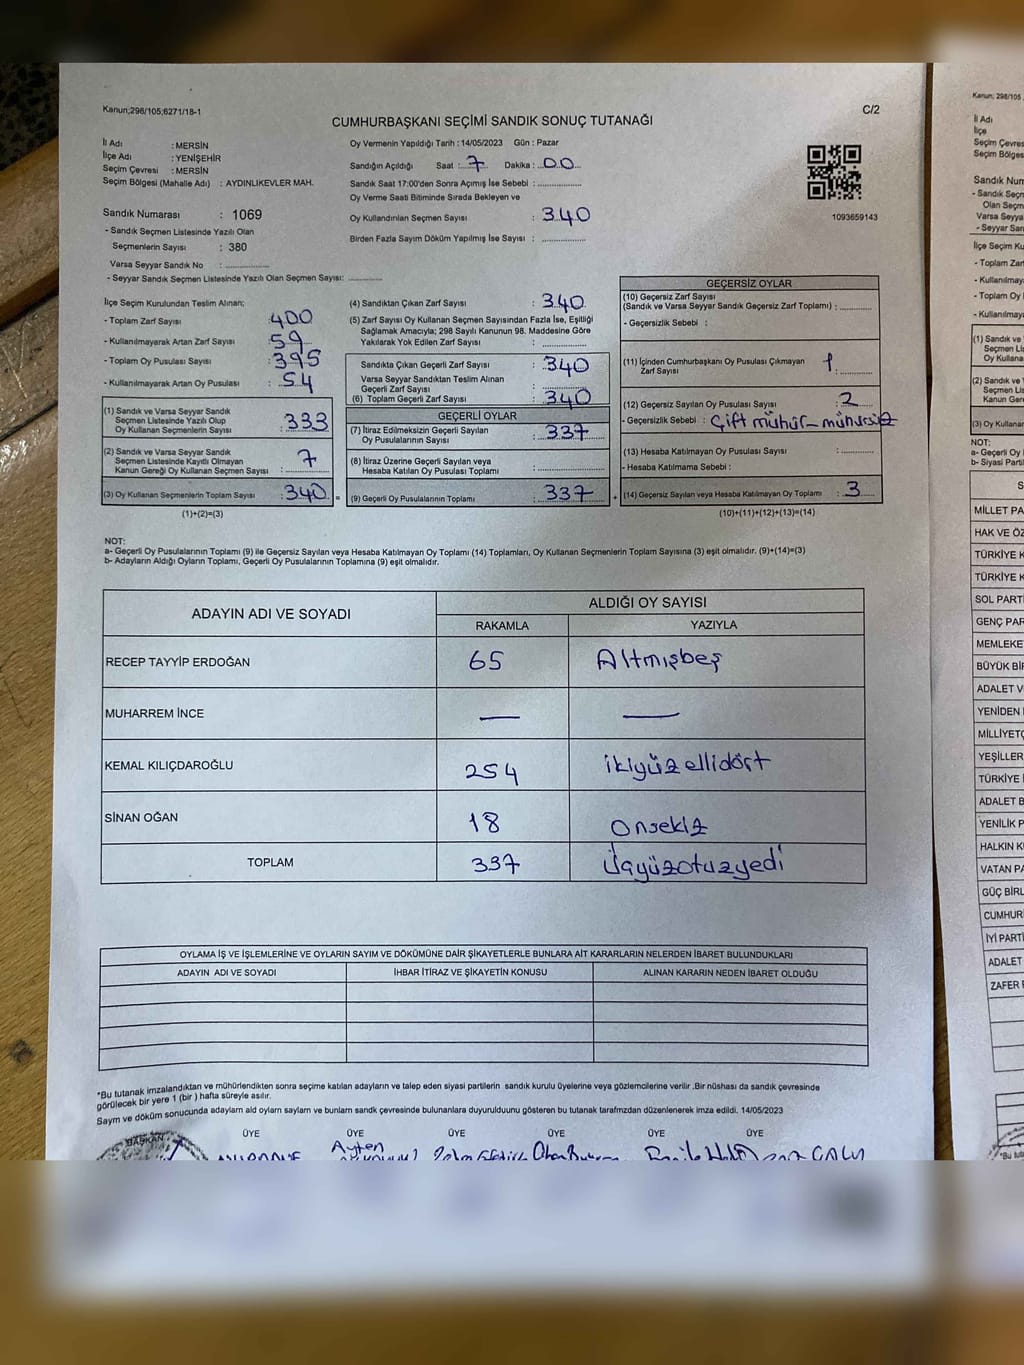 Kanun;298/105;6271/18-1
C/2
CUMHURBAŞKANI SEÇİMİ SANDIK SONUÇ TUTANAĞI
İl Adı : MERSİN
İlçe Adı : YENİŞEHİR
Seçim Çevresi : MERSİN
Seçim Bölgesi (Mahalle Adı) : AYDINLIKEVLER MAH.
Sandık Numarası : 1069
- Sandık Seçmen Listesinde Yazılı Olan
Seçmenlerin Sayısı : 380
Varsa Seyyar Sandık No : ............
- Seyyar Sandık Seçmen Listesinde Yazılı Olan Seçmen Sayısı: ............
Oy Vermenin Yapıldığı Tarih : 14/05/2023 Gün : Pazar
Sandığın Açıldığı Saat : 7 Dakika : 00
Sandık Saat 17:00'den Sonra Açımış İse Sebebi : ............
Oy Verme Saati Bitiminde Sırada Bekleyen ve
Oy Kullandırılan Seçmen Sayısı : 340
Birden Fazla Sayım Döküm Yapılmış İse Sayısı : ............
1093659143
İlçe Seçim Kurulundan Teslim Alınan;
- Toplam Zarf Sayısı : 400
- Kullanılmayarak Artan Zarf Sayısı : 59
- Toplam Oy Pusulası Sayısı : 395
- Kullanılmayarak Artan Oy Pusulası : 54
(1) Sandık ve Varsa Seyyar Sandık
Seçmen Listesinde Yazılı Olup
Oy Kullanan Seçmenlerin Sayısı : 333
(2) Sandık ve Varsa Seyyar Sandık
Seçmen Listesinde Kayıtlı Olmayan
Kanun Gereği Oy Kullanan Seçmen Sayısı : 7
(3) Oy Kullanan Seçmenlerin Toplam Sayısı : 340 =
(1)+(2)=(3)
(4) Sandıktan Çıkan Zarf Sayısı : 340
(5) Zarf Sayısı Oy Kullanan Seçmen Sayısından Fazla İse, Eşitliği
Sağlamak Amacıyla; 298 Sayılı Kanunun 98. Maddesine Göre
Yakılarak Yok Edilen Zarf Sayısı : ............
Sandıkta Çıkan Geçerli Zarf Sayısı : 340
Varsa Seyyar Sandıktan Teslim Alınan
Geçerli Zarf Sayısı : ............
(6) Toplam Geçerli Zarf Sayısı : 340
GEÇERLİ OYLAR
(7) İtiraz Edilmeksizin Geçerli Sayılan
Oy Pusulalarının Sayısı : 337
(8) İtiraz Üzerine Geçerli Sayılan veya
Hesaba Katılan Oy Pusulası Toplamı : ............
(9) Geçerli Oy Pusulalarının Toplamı : 337 +
GEÇERSİZ OYLAR
(10) Geçersiz Zarf Sayısı
(Sandık ve Varsa Seyyar Sandık Geçersiz Zarf Toplamı) : ............
- Geçersizlik Sebebi :
(11) İçinden Cumhurbaşkanı Oy Pusulası Çıkmayan
Zarf Sayısı : 1
(12) Geçersiz Sayılan Oy Pusulası Sayısı : 2
- Geçersizlik Sebebi : Çift mühür - mühürsüz
(13) Hesaba Katılmayan Oy Pusulası Sayısı : ............
- Hesaba Katılmama Sebebi :
(14) Geçersiz Sayılan veya Hesaba Katılmayan Oy Toplamı : 3
(10)+(11)+(12)+(13)=(14)
NOT:
a- Geçerli Oy Pusulalarının Toplamı (9) ile Geçersiz Sayılan veya Hesaba Katılmayan Oy Toplamı (14) Toplamları, Oy Kullanan Seçmenlerin Toplam Sayısına (3) eşit olmalıdır. (9)+(14)=(3)
b- Adayların Aldığı Oyların Toplamı, Geçerli Oy Pusulalarının Toplamına (9) eşit olmalıdır.
ADAYIN ADI VE SOYADI ALDIĞI OY SAYISI
RAKAMLA YAZIYLA
RECEP TAYYİP ERDOĞAN 65 Altmışbeş
MUHARREM İNCE — —
KEMAL KILIÇDAROĞLU 254 ikiyüzellidört
SİNAN OĞAN 18 onsekiz
TOPLAM 337 Üçyüzotuzyedi
OYLAMA İŞ VE İŞLEMLERİNE VE OYLARIN SAYIM VE DÖKÜMÜNE DAİR ŞİKAYETLERLE BUNLARA AİT KARARLARIN NELERDEN İBARET BULUNDUKLARI
ADAYIN ADI VE SOYADI İHBAR İTİRAZ VE ŞİKAYETİN KONUSU ALINAN KARARIN NEDEN İBARET OLDUĞU
*Bu tutanak imzalandıktan ve mühürlendikten sonra seçime katılan adayların ve talep eden siyasi partilerin sandık kurulu üyelerine veya gözlemcilerine verilir ,Bir nüshası da sandık çevresinde
görülecek bir yere 1 (bir ) hafta süreyle asılır.
Sayım ve döküm sonucunda adaylarn ald oylarn saylarn ve bunlarn sandk çevresinde bulunanlara duyurulduunu gösteren bu tutanak tarafmzdan düzenlenerek imza edildi. 14/05/2023
BAŞKAN ÜYE ÜYE ÜYE ÜYE ÜYE ÜYE
Ayten
Kanun; 298/105
İl Adı
İlçe
Seçim Çevre
Seçim Bölges
Sandık Num
- Sandık Seç
Olan Seçm
Varsa Seyya
- Seyyar San
İlçe Seçim Ku
- Toplam Zar
- Kullanılmay
- Toplam Oy
- Kullanılmay
(1) Sandık ve
Seçmen Lis
Oy Kullana
(2) Sandık ve
Seçmen Lis
Kanun Gere
(3) Oy Kullanan
NOT:
a- Geçerli Oy
b- Siyasi Parti
S
MİLLET PA
HAK VE ÖZ
TÜRKİYE K
TÜRKİYE K
SOL PARTİ
GENÇ PAR
MEMLEKE
BÜYÜK BİR
ADALET V
YENİDEN
MİLLİYETÇ
YEŞİLLER
TÜRKİYE İ
ADALET B
YENİLİK P
HALKIN K
VATAN PA
GÜÇ BİRL
CUMHURİ
İYİ PARTİ
ADALET
ZAFER
*Bu tuta